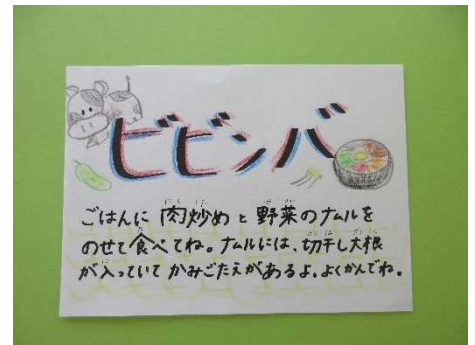 ビビンバ
ごはんに 肉炒め と 野菜のナムルを
のせて食べてね。ナムルには、切干し大根
が入っていて かみごたえがあるよ。よくかんでね。